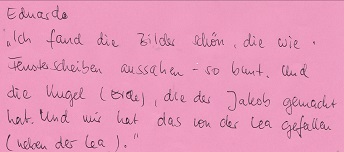 Eduardo
„Ich fand die Bilder schön, die wie
Fensterscheiben aussahen - so bunt. Und
die Kugel (Erde), die der Jakob gemacht
hat. Und mir hat das von der Lea gefallen
(neben der Lea)."